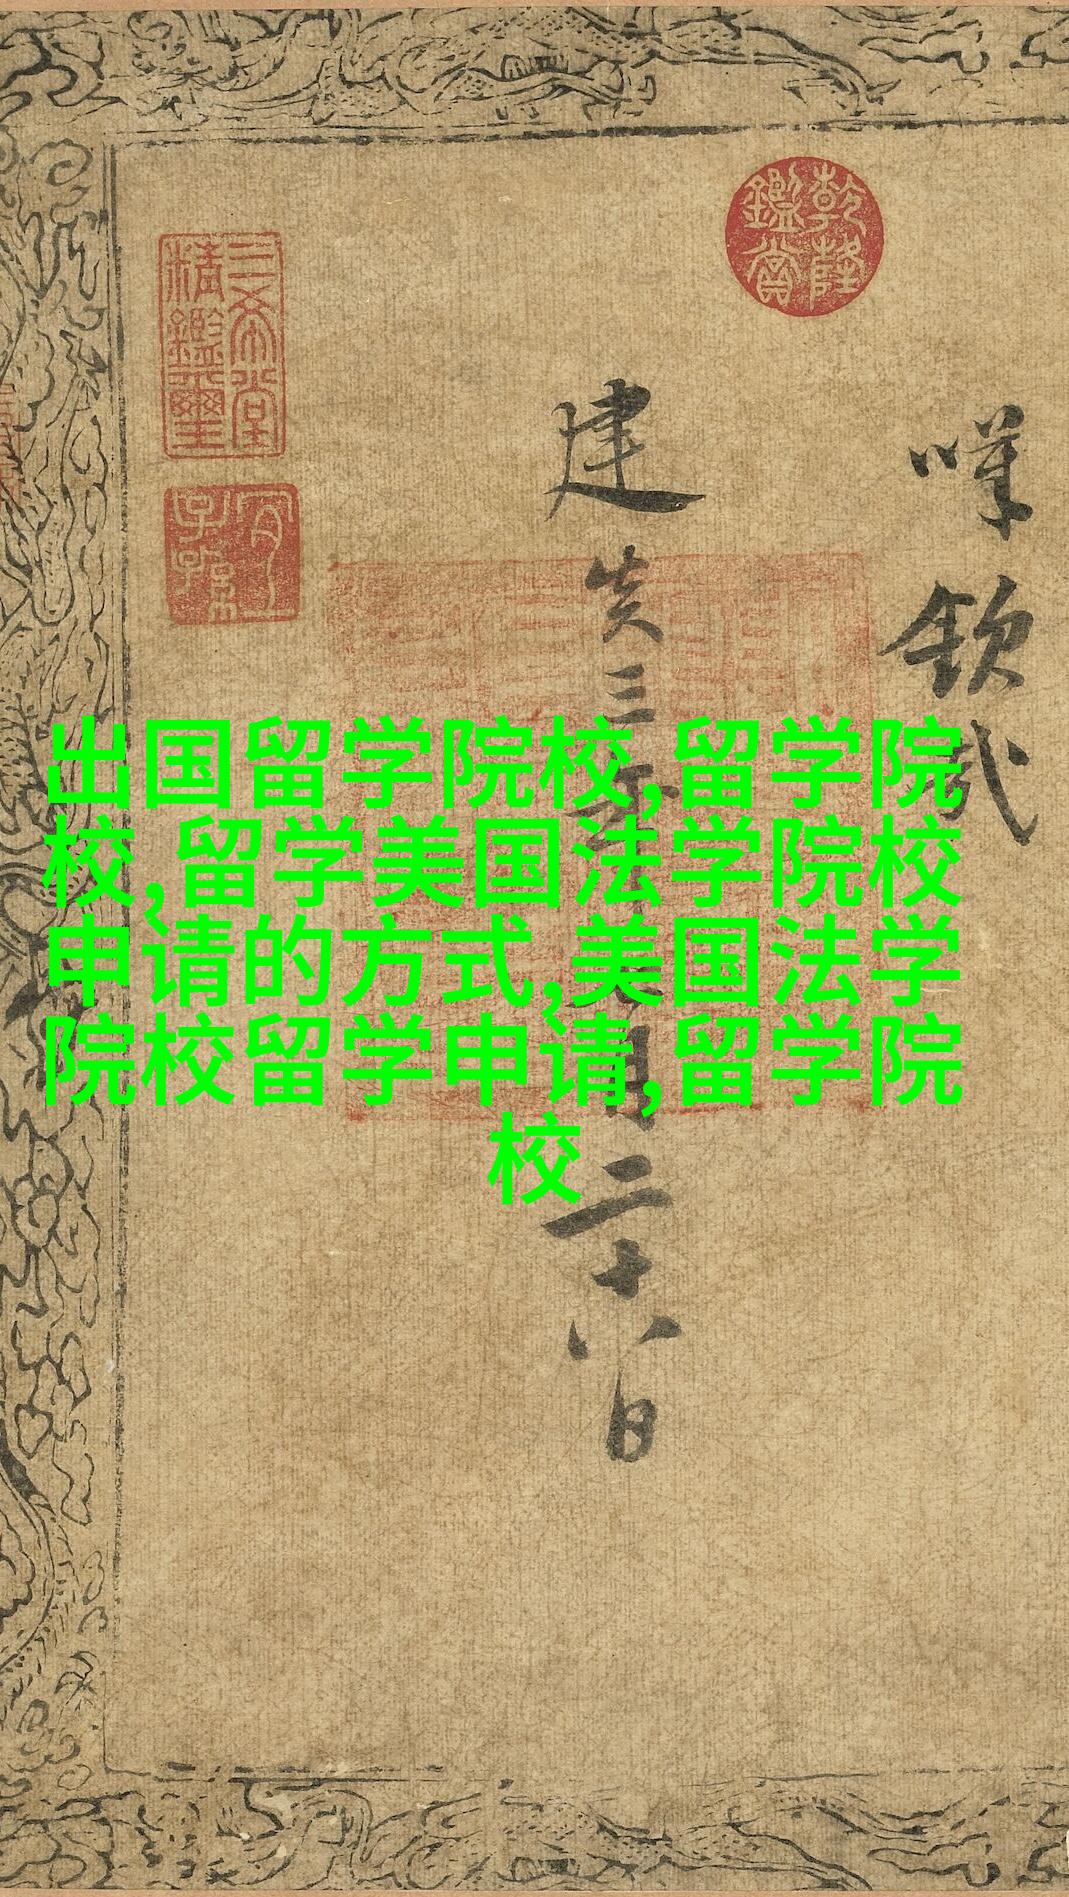 出国留学院校,留学院
校,留学美国法学院校
申请的方式,美国法学
院校留学申请,留学院
校
乾隆鑑賞
欽哉
建炎三年
月二十八日
三希堂精鑑璽
宜子孫